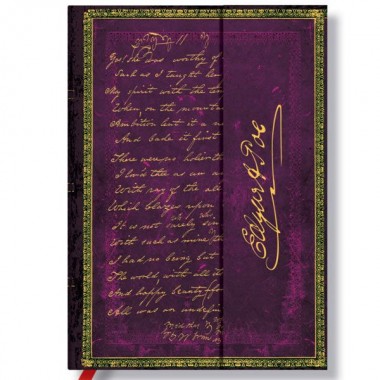 Yes! she was worthy of
Such as I taught her
My spirit with the
When on the mountain
Ambition lent it a
And bade it first
There were no holier
I lov'd thee as an
With ray of the all
Which blazes upon
It is not surely sin
With such as mine
I had no being but
The world with all
And happy beauty
All was an
Edgar A Poe